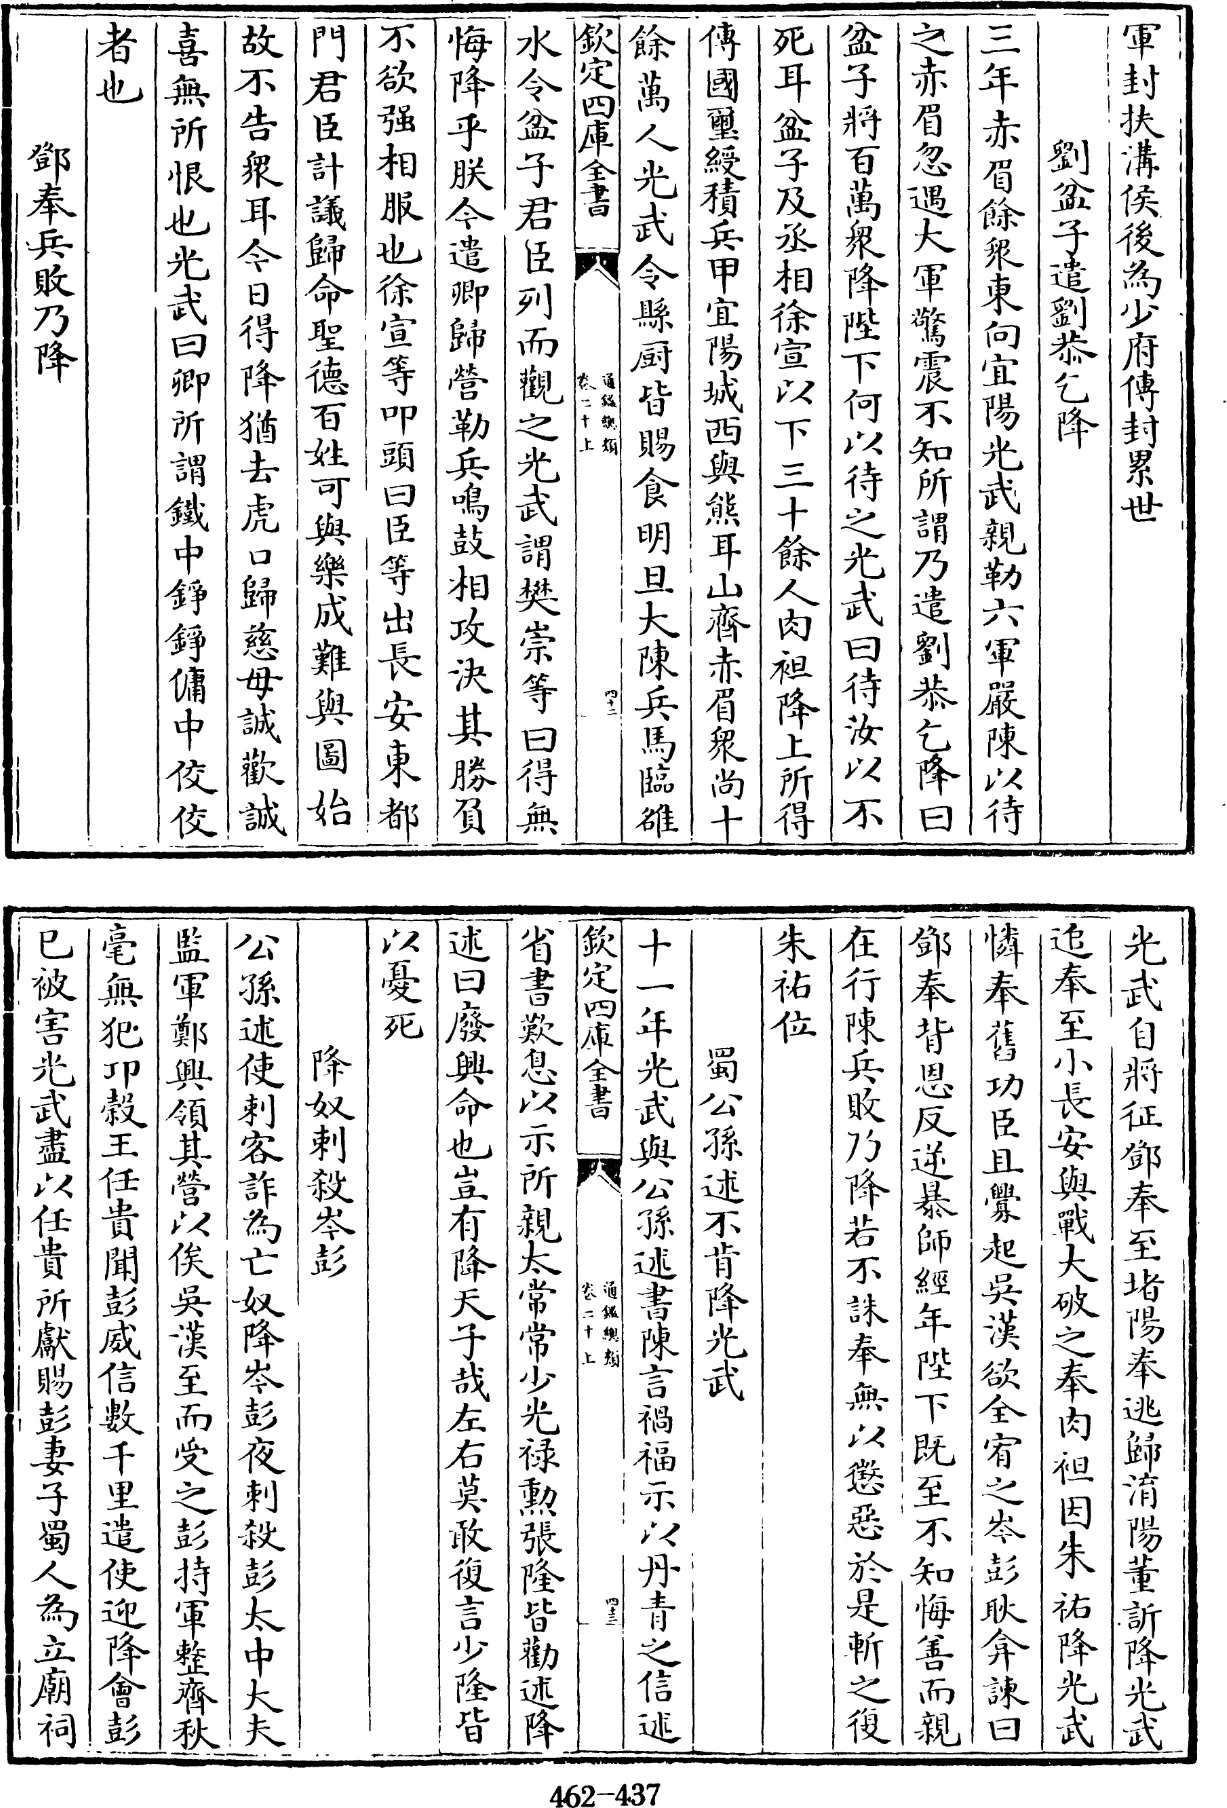 軍封扶溝侯後為少府傳封累世
劉盆子遣劉恭乞降
三年赤眉餘衆東向宜陽光武親勒六軍嚴陳以待
之赤眉忽遇大軍驚震不知所謂乃遣劉恭乞降曰
盆子將百萬衆降陛下何以待之光武曰待汝以不
死耳盆子及丞相徐宣以下三十餘人肉袒降上所得
傳國璽綬積兵甲宜陽城西與熊耳山齊赤眉衆尚十
餘萬人光武令縣厨皆賜食明旦大陳兵馬臨雒
欽定四庫全書
通鑑總類
卷二十上
四十二
水令盆子君臣列而觀之光武謂樊崇等曰得無
悔降乎朕今遣卿歸營勒兵鳴鼓相攻決其勝負
不欲强相服也徐宣等叩頭曰臣等出長安東都
門君臣計議歸命聖德百姓可與樂成難與圖始
故不告衆耳今日得降猶去虎口歸慈母誠歡誠
喜無所恨也光武曰卿所謂鐵中錚錚傭中佼佼
者也
鄧奉兵敗乃降
光武自將征鄧奉至堵陽奉逃歸淯陽董訢降光武
追奉至小長安與戰大破之奉肉袒因朱祐降光武
憐奉舊功臣且釁起吳漢欲全宥之岑彭耿弇諫曰
鄧奉背恩反逆暴師經年陛下既至不知悔善而親
在行陳兵敗乃降若不誅奉無以懲惡於是斬之復
朱祐位
蜀公孫述不肯降光武
十一年光武與公孫述書陳言禍福示以丹青之信述
欽定四庫全書
通鑑總類
卷二十上
四十三
省書歎息以示所親太常常少光禄勳張隆皆勸述降
述曰廢興命也豈有降天子哉左右莫敢復言少隆皆
以憂死
降奴刺殺岑彭
公孫述使刺客詐為亡奴降岑彭夜刺殺彭太中大夫
監軍鄭興領其營以俟吳漢至而受之彭持軍整齊秋
毫無犯卭榖王任貴聞彭威信數千里遣使迎降會彭
已被害光武盡以任貴所獻賜彭妻子蜀人為立廟祠
462-437